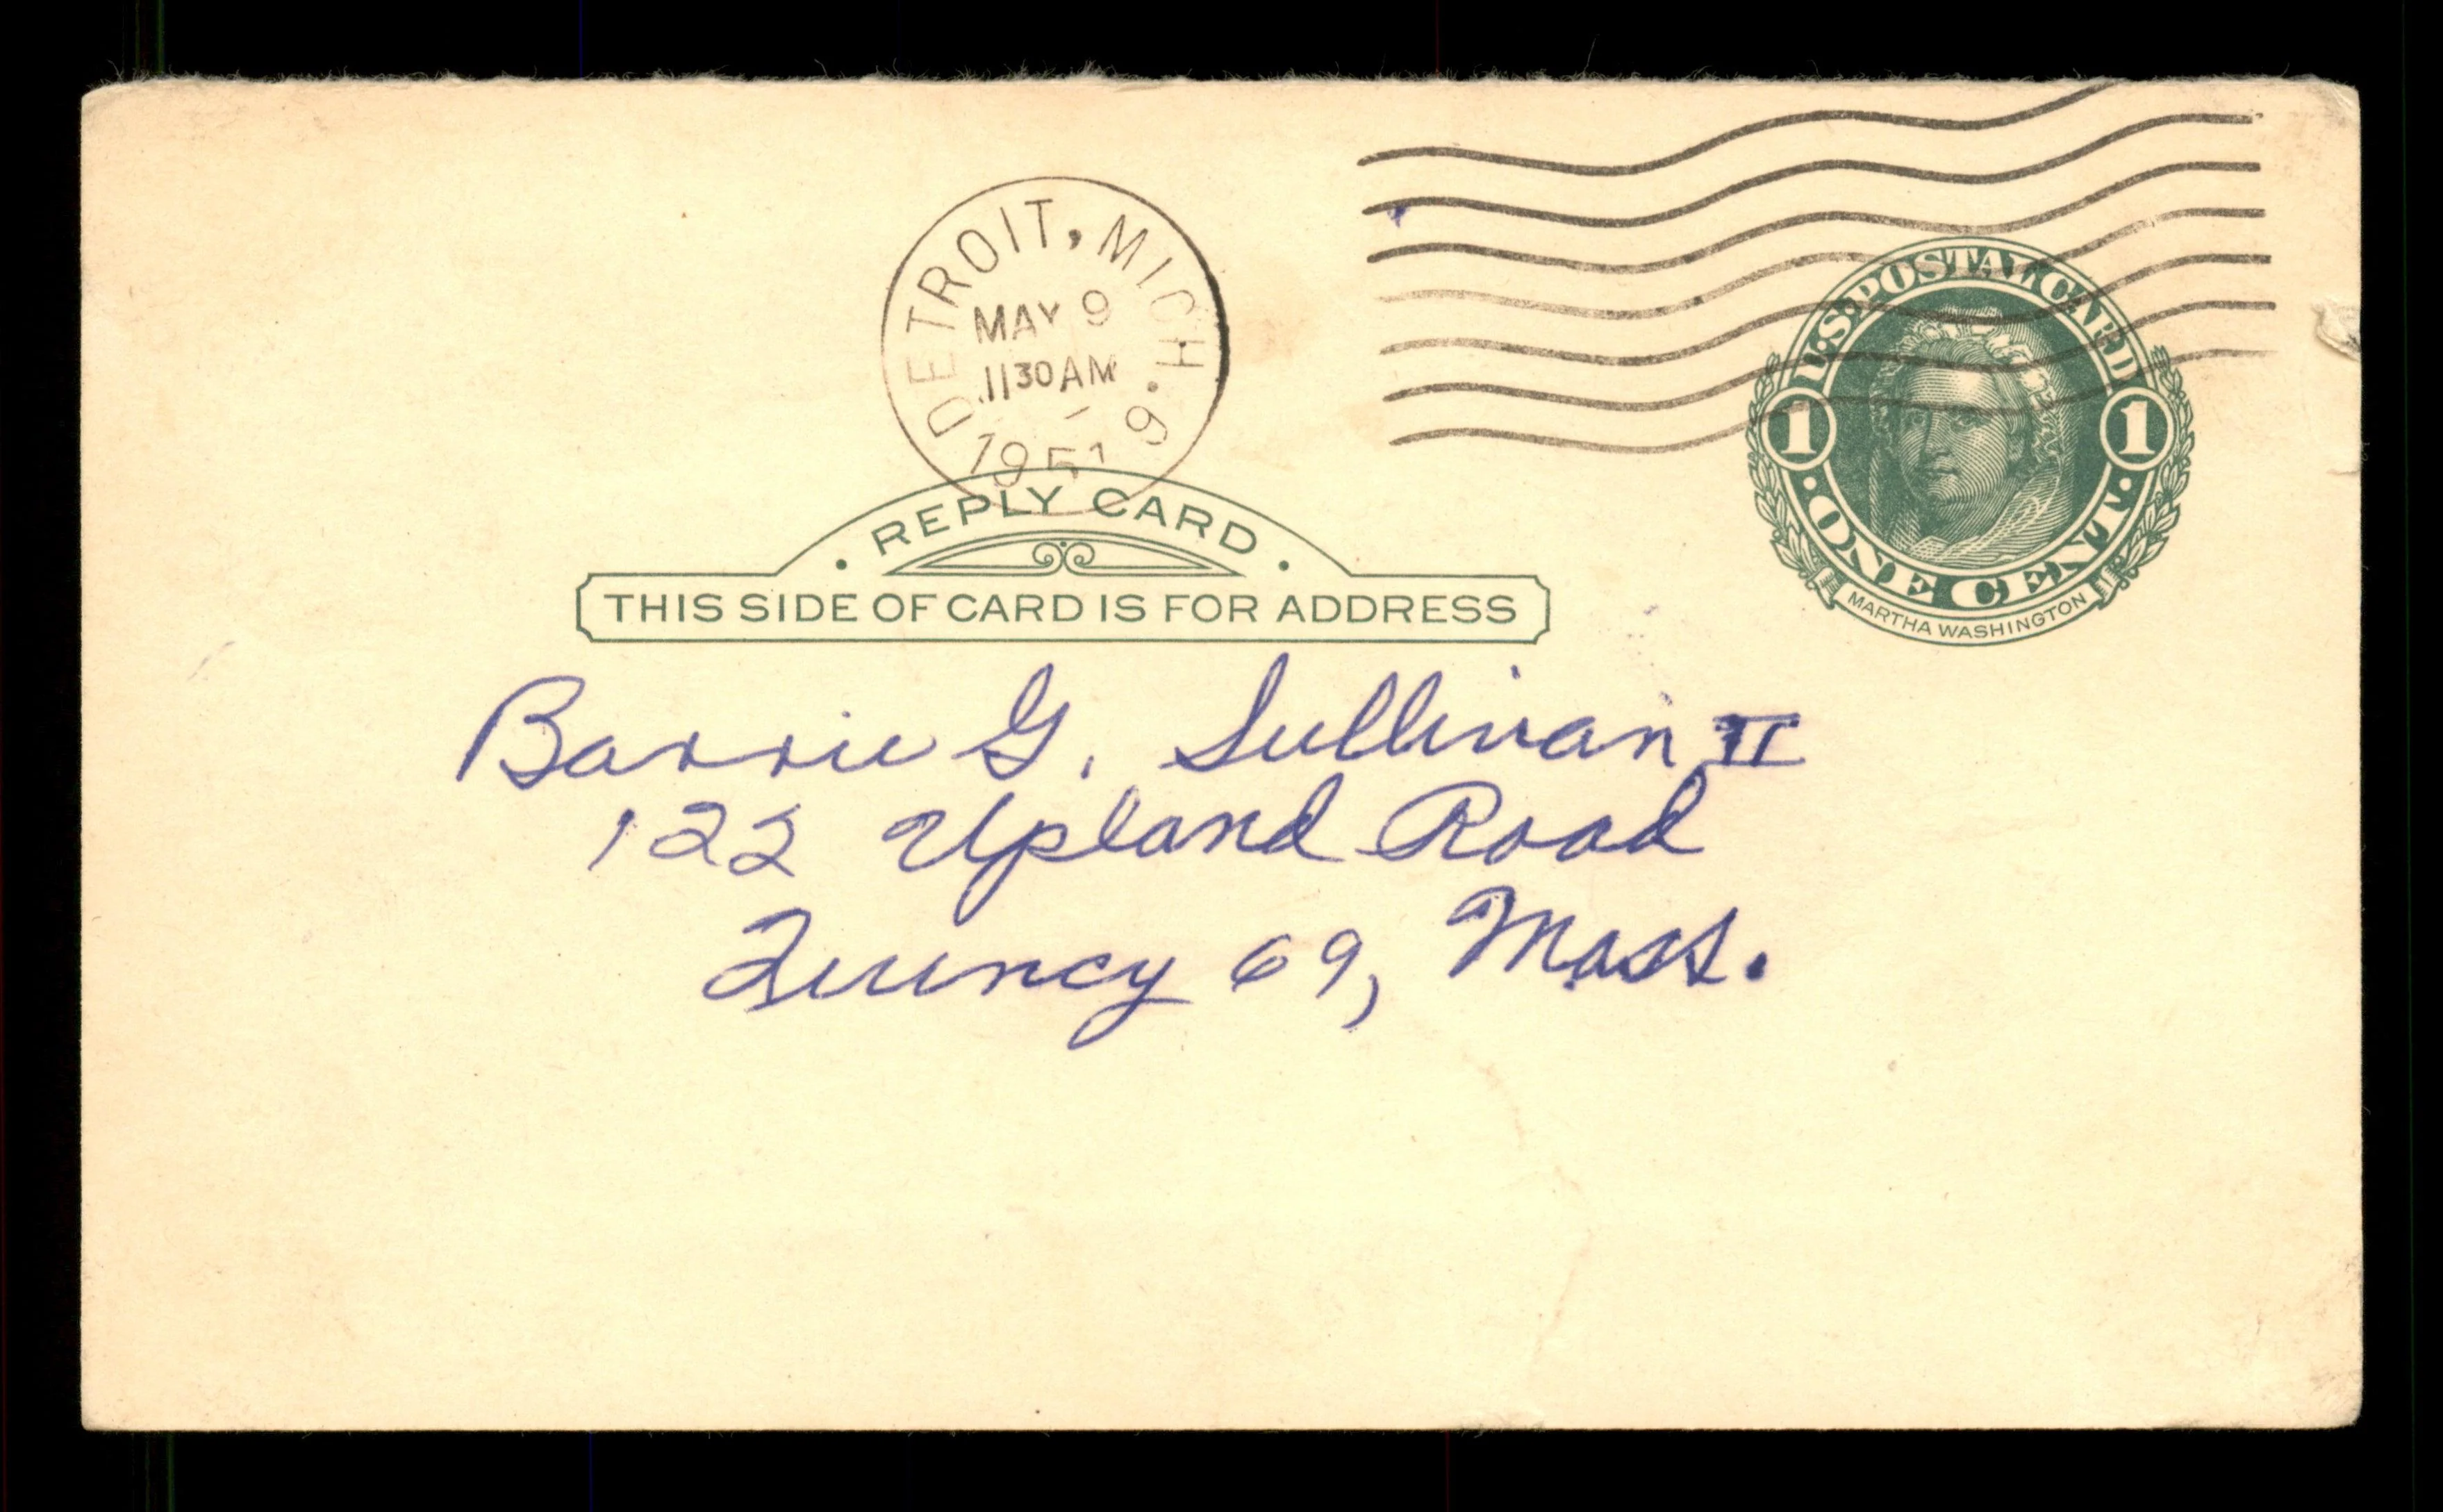 DETROIT, MICH. 9
MAY 9
11 30 AM
1951
U.S. POSTAL CARD
1 1
ONE CENT
MARTHA WASHINGTON
REPLY CARD
THIS SIDE OF CARD IS FOR ADDRESS
Barrie G. Sullivan II
122 Upland Road
Quincy 69, Mass.